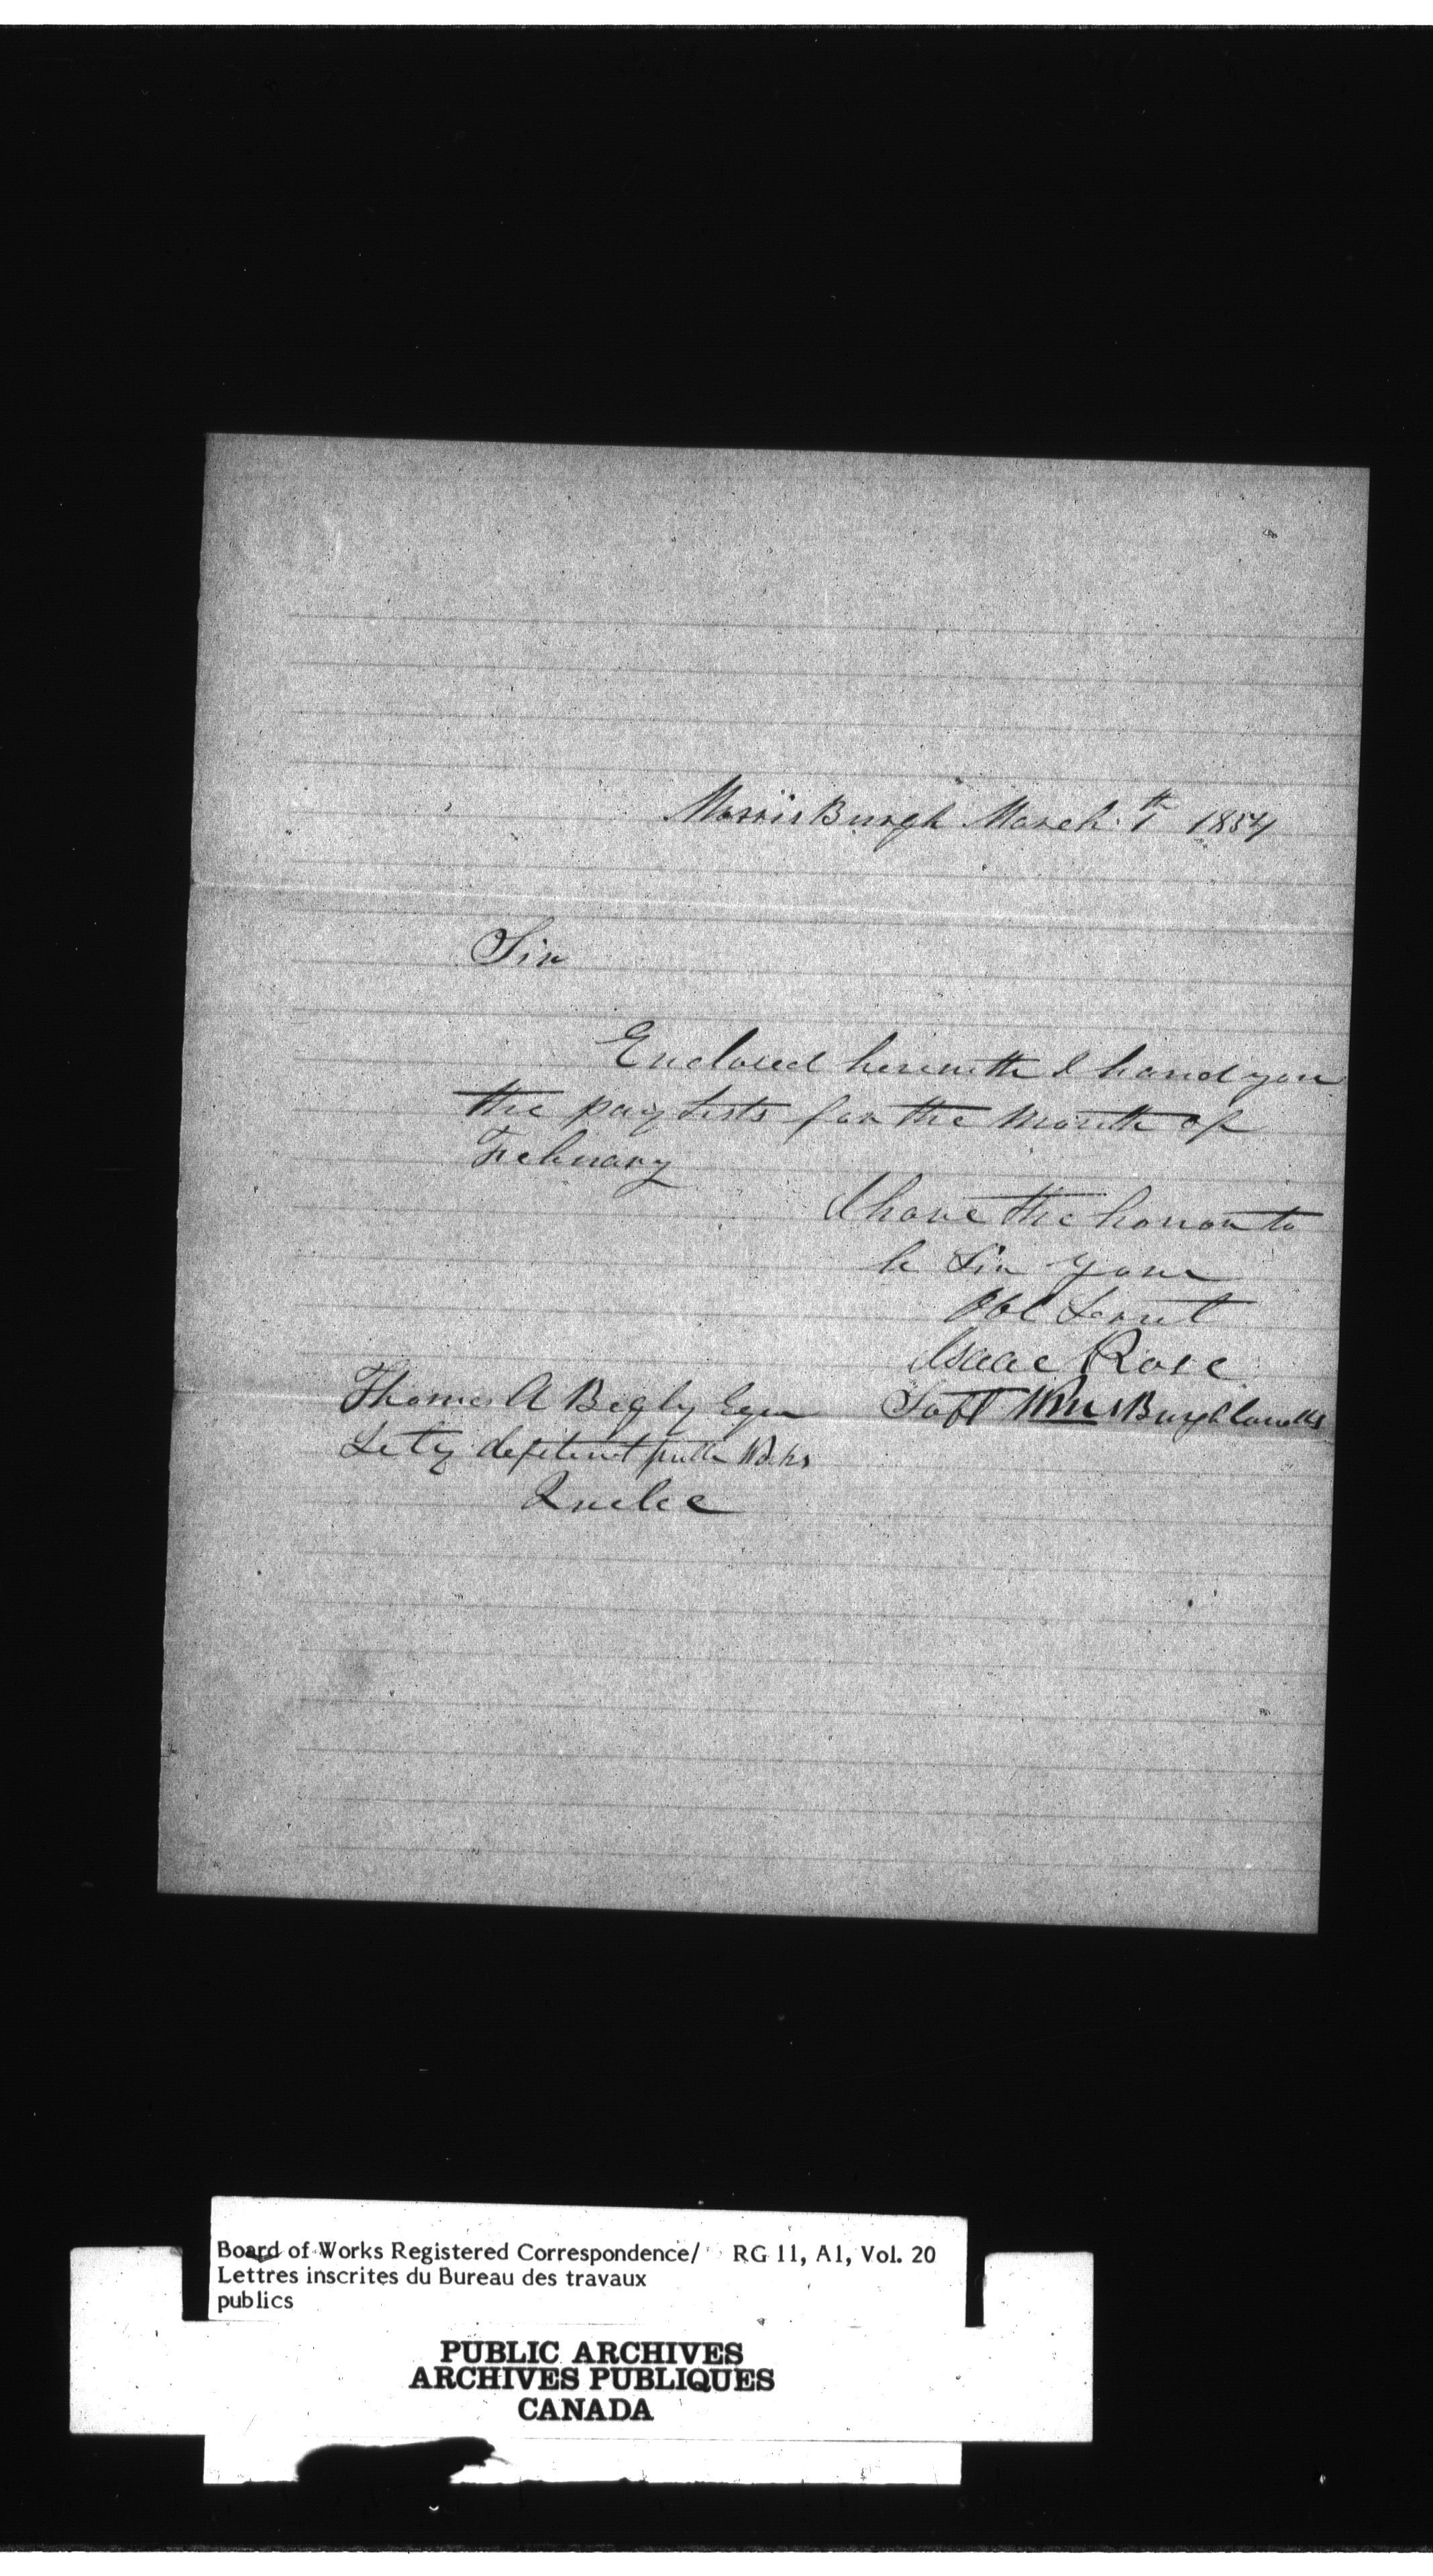 MorrisBurgh March 1th 1854
Sir
Enclosed herewith I hand you
the pay Lists for the Month of
February
I have the honor to
be Sir your
Obt Servt
Isaac Rose
Supt Wms Burgh Canals
Thomas A Begly Esqr
Sety deptment publc Works
Quebec
Board of Works Registered Correspondence/ RG 11, A1, Vol. 20
Lettres inscrites du Bureau des travaux
publics
PUBLIC ARCHIVES
ARCHIVES PUBLIQUES
CANADA